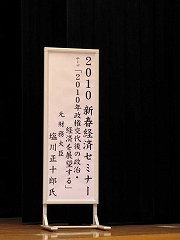 2010 新春経済セミナー
テーマ「2010年政権交代後の政治・
経済を展望する」
元財務大臣
塩川正十郎氏